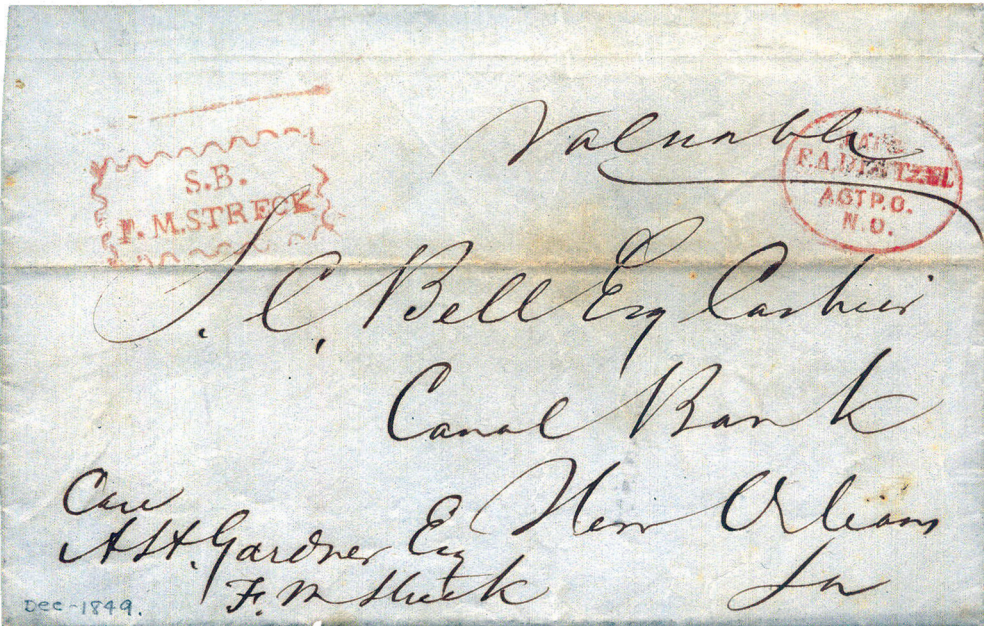 Valuable
S.B.
F. M. STRECK
F.A. DENTZEL
AGT P.O.
N.O.
S. C. Bell Esq Cashier
Canal Bank
New Orleans
La
Care
A.H. Gardner Esq
F. M Streck
Dec-1849.